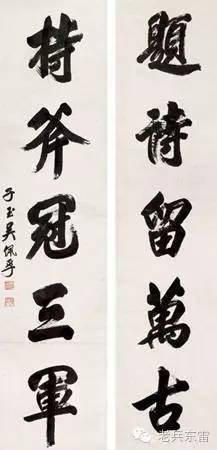 題詩留萬古
持斧冠三軍
子玉吳佩孚
老兵东雷